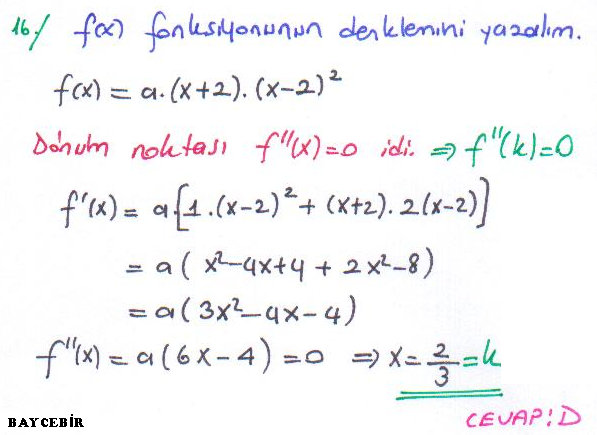 16/ f(x) fonksiyonunun denklemini yazalım.
f(x) = a.(x+2).(x-2)²
Dönüm noktası f''(x)=0 idi. ⇒ f''(k)=0
f'(x) = a[1.(x-2)² + (x+2).2(x-2)]
= a( x²-4x+4 + 2x²-8)
= a(3x²-4x-4)
f''(x) = a(6x-4) = 0 ⇒ x = 2/3 = k
CEVAP:D
BAYCEBİR